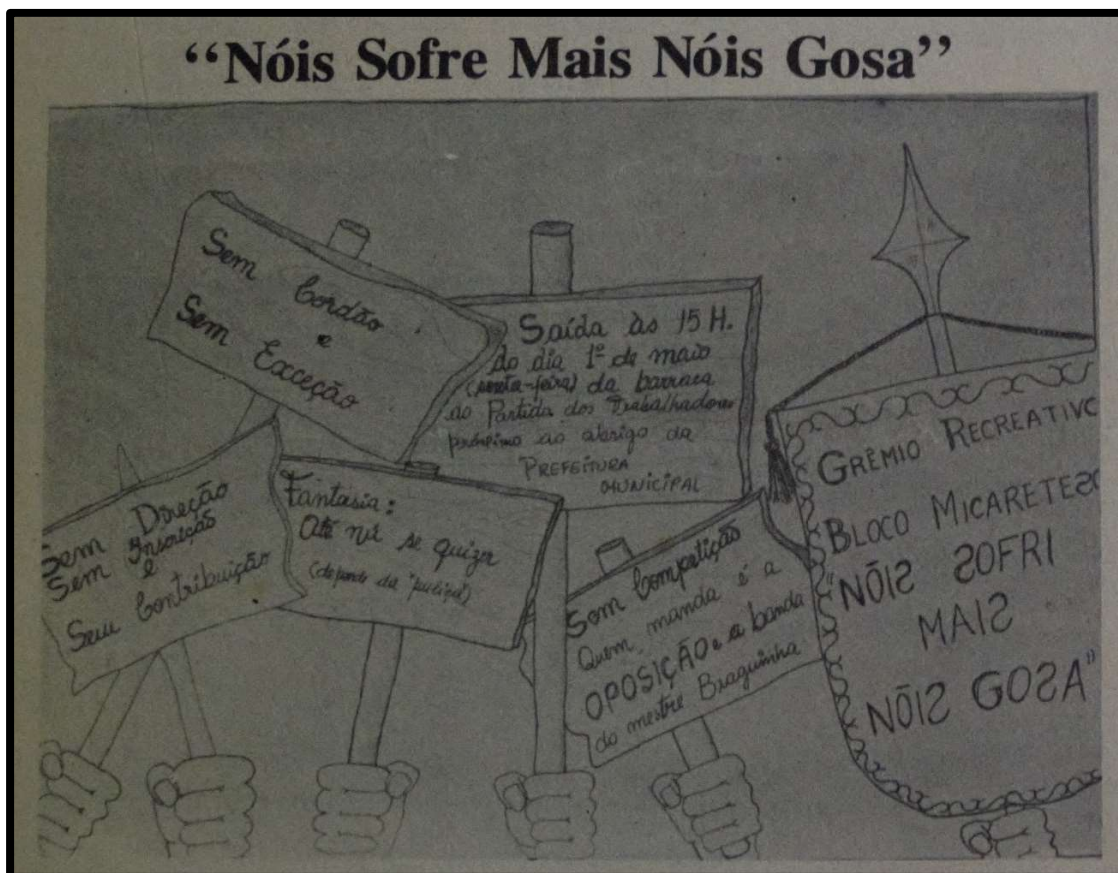 “Nóis Sofre Mais Nóis Gosa”
Sem Cordão
e
Sem Exceção
Saída às 15 H.
do dia 1º de maio
(sexta-feira) da barraca
do Partido dos Trabalhadores
próximo ao abrigo da
PREFEITURA
MUNICIPAL
Sem Direção
Sem Inscrição
e
Sem Contribuição
Fantasia:
Até nú se quizer
(depende da
Som Competição
Quem manda é a
OPOSIÇÃO e a banda
do mestre Braguinha
GRÊMIO RECREATIVO
BLOCO MICARETESCO
"NÓIS SOFRI
MAIS
NÓIS GOSA"